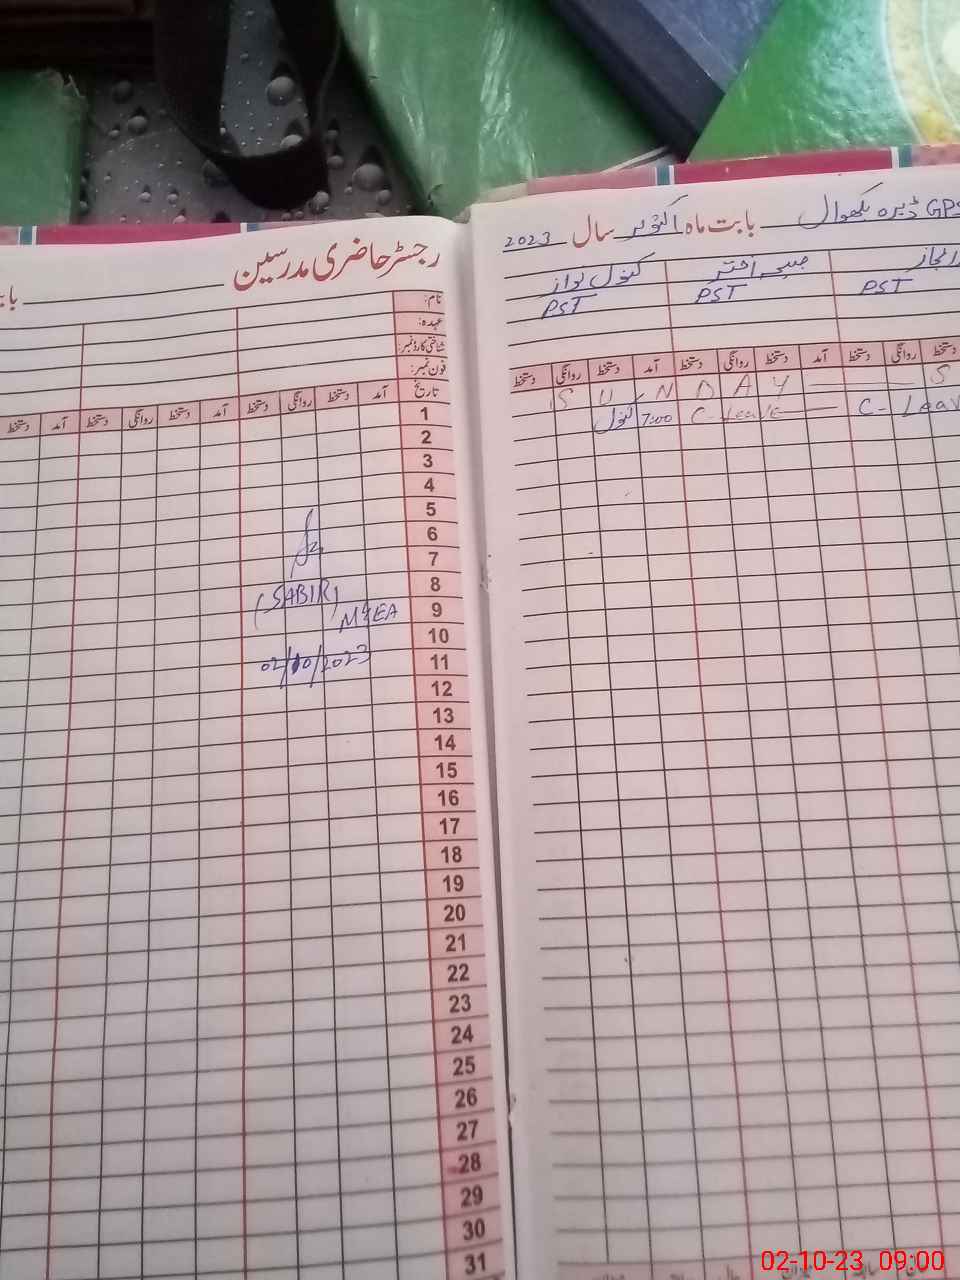 رجسٹر حاضری مدرسین
نام:
عہدہ:
شناختی کارڈ نمبر:
فون نمبر:
تاریخ آمد دستخط روانگی دستخط آمد دستخط روانگی دستخط آمد دستخط
1
2
3
4
5
6
7
8
9
10
11
12
13
14
15
16
17
18
19
20
21
22
23
24
25
26
27
28
29
30
31
(SABIR)
MEA
02/10/2023
GPS ڈیرہ بابت ماہ اکتوبر سال 2023
اختر کنول نواز
PST PST PST
دستخط روانگی دستخط آمد دستخط روانگی دستخط آمد دستخط روانگی دستخط
S U N D A Y S
کنول 7:00 C-Leave C-Leav
02-10-23 09:00